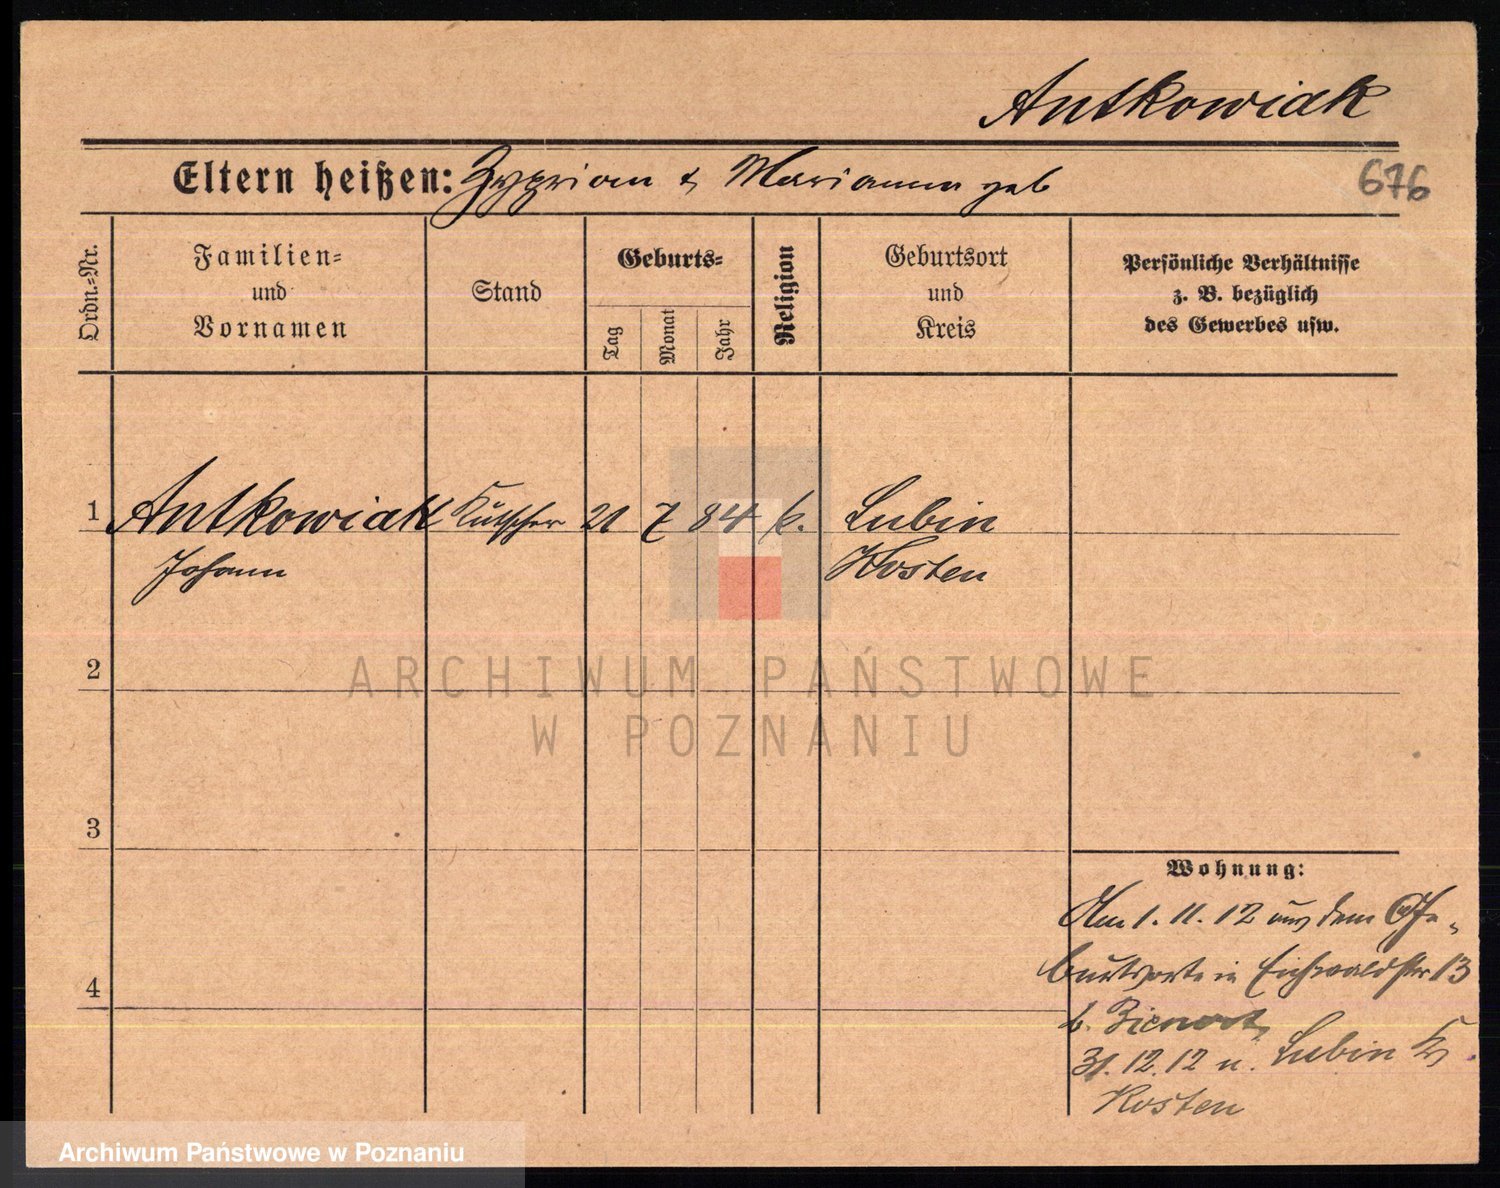 Antkowiak
Eltern heißen: Zyprian & Marianna geb
676
Ordn.-Nr.
Familien-
und
Vornamen
Stand
Geburts-
Tag
Monat
Jahr
Religion
Geburtsort
und
Kreis
Persönliche Verhältnisse
z. B. bezüglich
des Gewerbes usw.
1 Antkowiak Kutscher 21 7 84 k. Lubin
Johann Kosten
2
ARCHIWUM PAŃSTWOWE
W POZNANIU
3
Wohnung:
Am 1. 11. 12 aus dem Ge-
burtsorte in Eichwaldstr 13
4
b.
31. 12. 12 n. Lubin Kr
Kosten
Archiwum Państwowe w Poznaniu